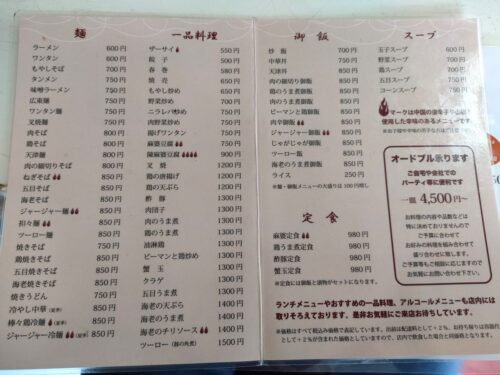 麺
ラーメン 600円
ワンタン 600円
もやしそば 750円
タンメン 750円
味噌ラーメン 750円
広東麺 750円
ワンタン麺 750円
叉焼麺 750円
肉そば 850円
鶏そば 850円
天津麺 850円
肉の細切りそば 850円
ねぎそば 850円
五目そば 850円
海老そば 850円
ジャージャー麺 850円
担々麺 850円
ツーロー麺 850円
焼きそば 750円
鶏焼きそば 850円
五目焼きそば 850円
海老焼きそば 850円
焼きうどん 750円
冷やし中華 850円
棒々鶏冷麺 850円
ジャージャー冷麺 850円
一品料理
ザーサイ 550円
餃子 500円
春巻 580円
もやし炒め 650円
野菜炒め 700円
ニラレバ炒め 750円
肉野菜炒め 750円
揚げワンタン 750円
麻婆豆腐 750円
陳麻婆豆腐 900円
叉焼
鶏の唐揚げ
鶏の天ぷら
酢豚
肉団子
肉のうま煮
鶏のうま煮
油淋鶏
ピーマンと鶏炒め
蟹玉
クラゲ
五目うま煮
海老の天ぷら
海老のうま煮 1400円
海老のチリソース 1400円
ツーロー(豚の角煮) 1500円
御飯
炒飯 700円
中華丼 750円
天津丼 850円
肉の細切り御飯 850円
鶏のうま煮御飯 850円
ピーマンと鶏御飯 850円
肉御飯 850円
ジャージャー御飯 850円
じゃがじゃが御飯 850円
ツーロー飯 850円
海老のうま煮御飯 850円
ライス 250円
※麺・御飯メニューの大盛りは100円増し
定食
麻婆定食 980円
鶏うま煮定食 980円
酢豚定食 980円
蟹玉定食 980円
※定食には御飯と漬物がセットになります。
スープ
玉子スープ 600円
野菜スープ 700円
肉スープ 750円
五目スープ 750円
コーンスープ 750円
マークは中国の唐辛子や山椒を
使用した辛味のあるメニューです!
オードブル承ります
ご自宅や会社での
パーティ等に便利です
一皿 4,500円〜
お料理の内容や品数などは
特に決めておりませんので
ご予算に合わせて
お好みの料理を組み合わせて
盛り合わせ致します。
ご予算等もご相談に応じますので
お気軽にお問い合せ下さい。
ランチメニューやおすすめの一品料理、アルコールメニューも店内には
取りそろえております。是非お気軽にご来店お待ちしています。